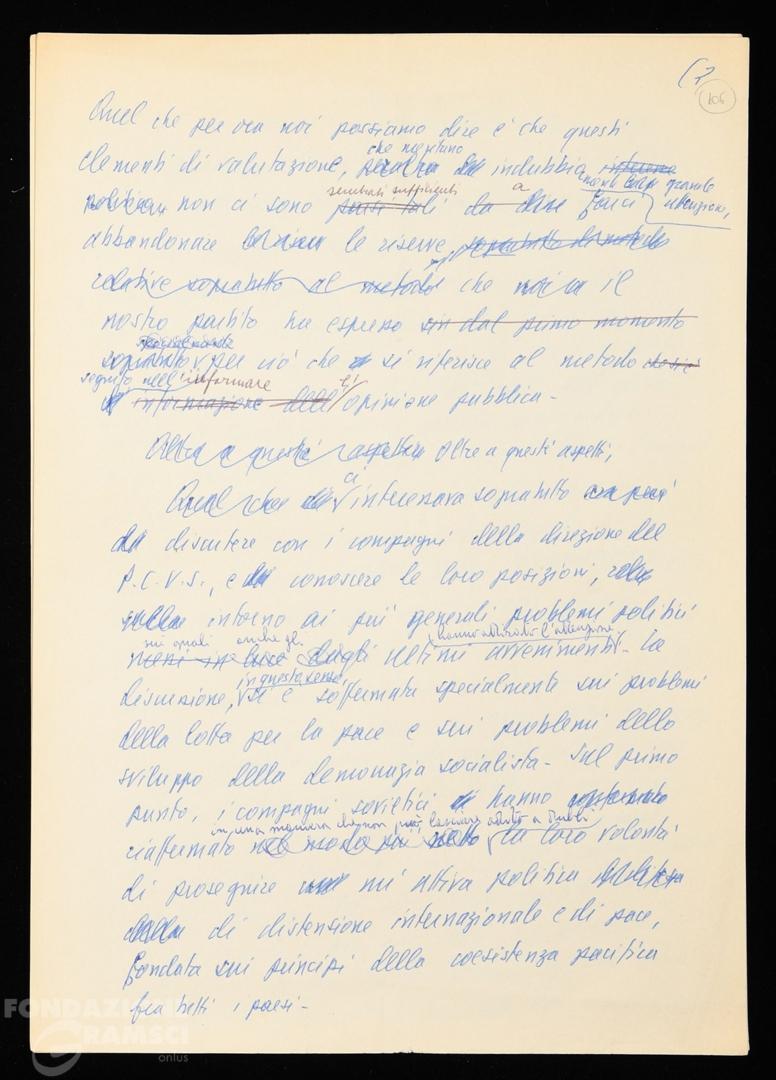 (7
106
Quel che per ora noi possiamo dire è che questi
che meritano
elementi di valutazione, indubbia interesse
grande
sembrati sufficienti a
non ci sono da farci attenzione,
abbandonare le riserve
relative sopratutto al metodo che il
nostro partito ha espresso sin dal primo momento
specialmente
sopratutto per ciò che si riferisce al metodo
seguito nell'informare l'
informazione dell' opinione pubblica -
Oltre a questi aspetti Oltre a questi aspetti,
ci
Quel che interessava sopratutto
discutere con i compagni della direzione del
P.C.U.S., e conoscere le loro posizioni,
sulle intorno ai più generali problemi politici
sui quali anche gl. hanno attirato l'attenzione
messi in luce dagli ultimi avvenimenti - La
in questo senso,
discussione, si è soffermata specialmente sui problemi
della lotta per la pace e sui problemi dello
sviluppo della democrazia socialista - Sul primo
punto, i compagni sovietici hanno confermato
in una maniera che non può lasciare adito a dubbi
riaffermato nel modo più netto la loro volontà
di proseguire un'attiva politica
di distensione internazionale e di pace,
fondata sui principi della coesistenza pacifica
fra tutti i paesi -
FONDAZIONE
GRAMSCI
onlus